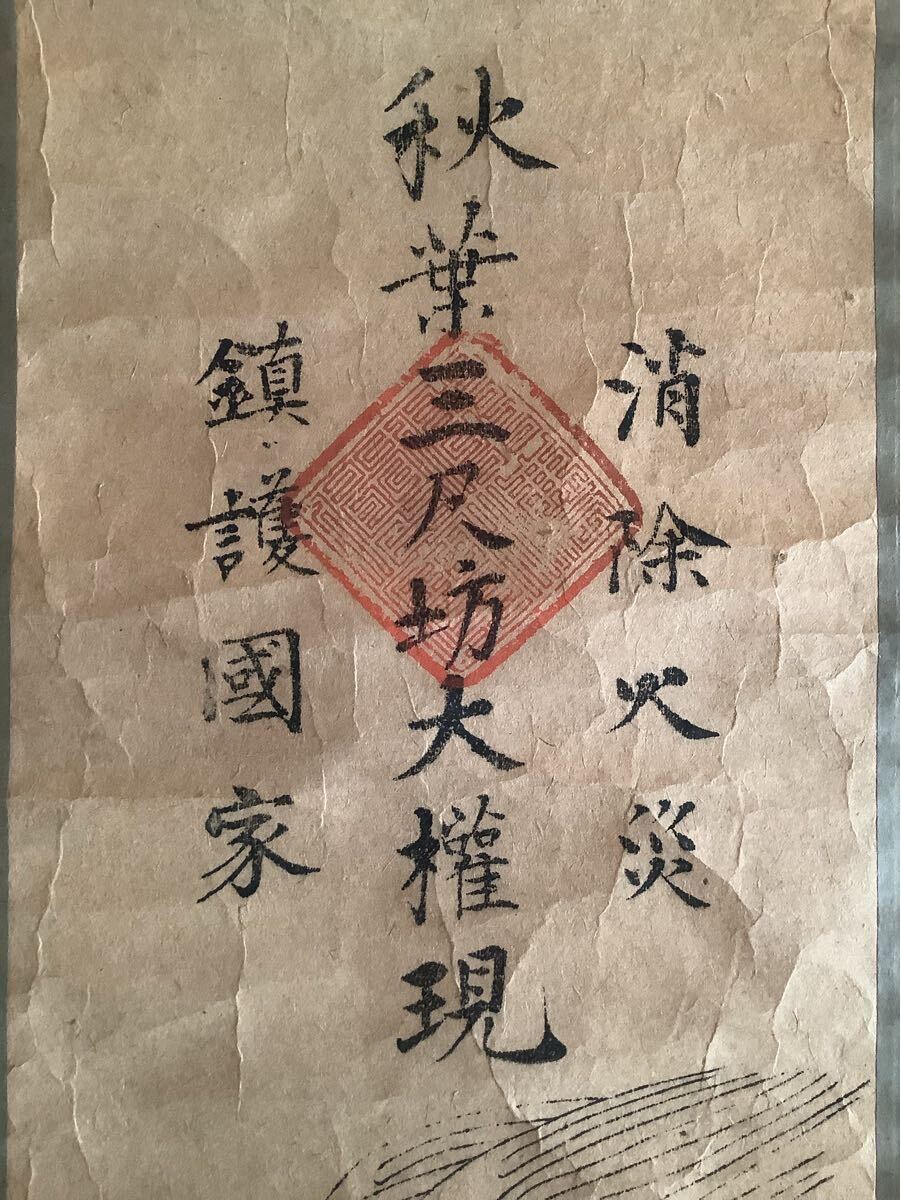 消除火災
秋葉三尺坊大權現
鎮護國家